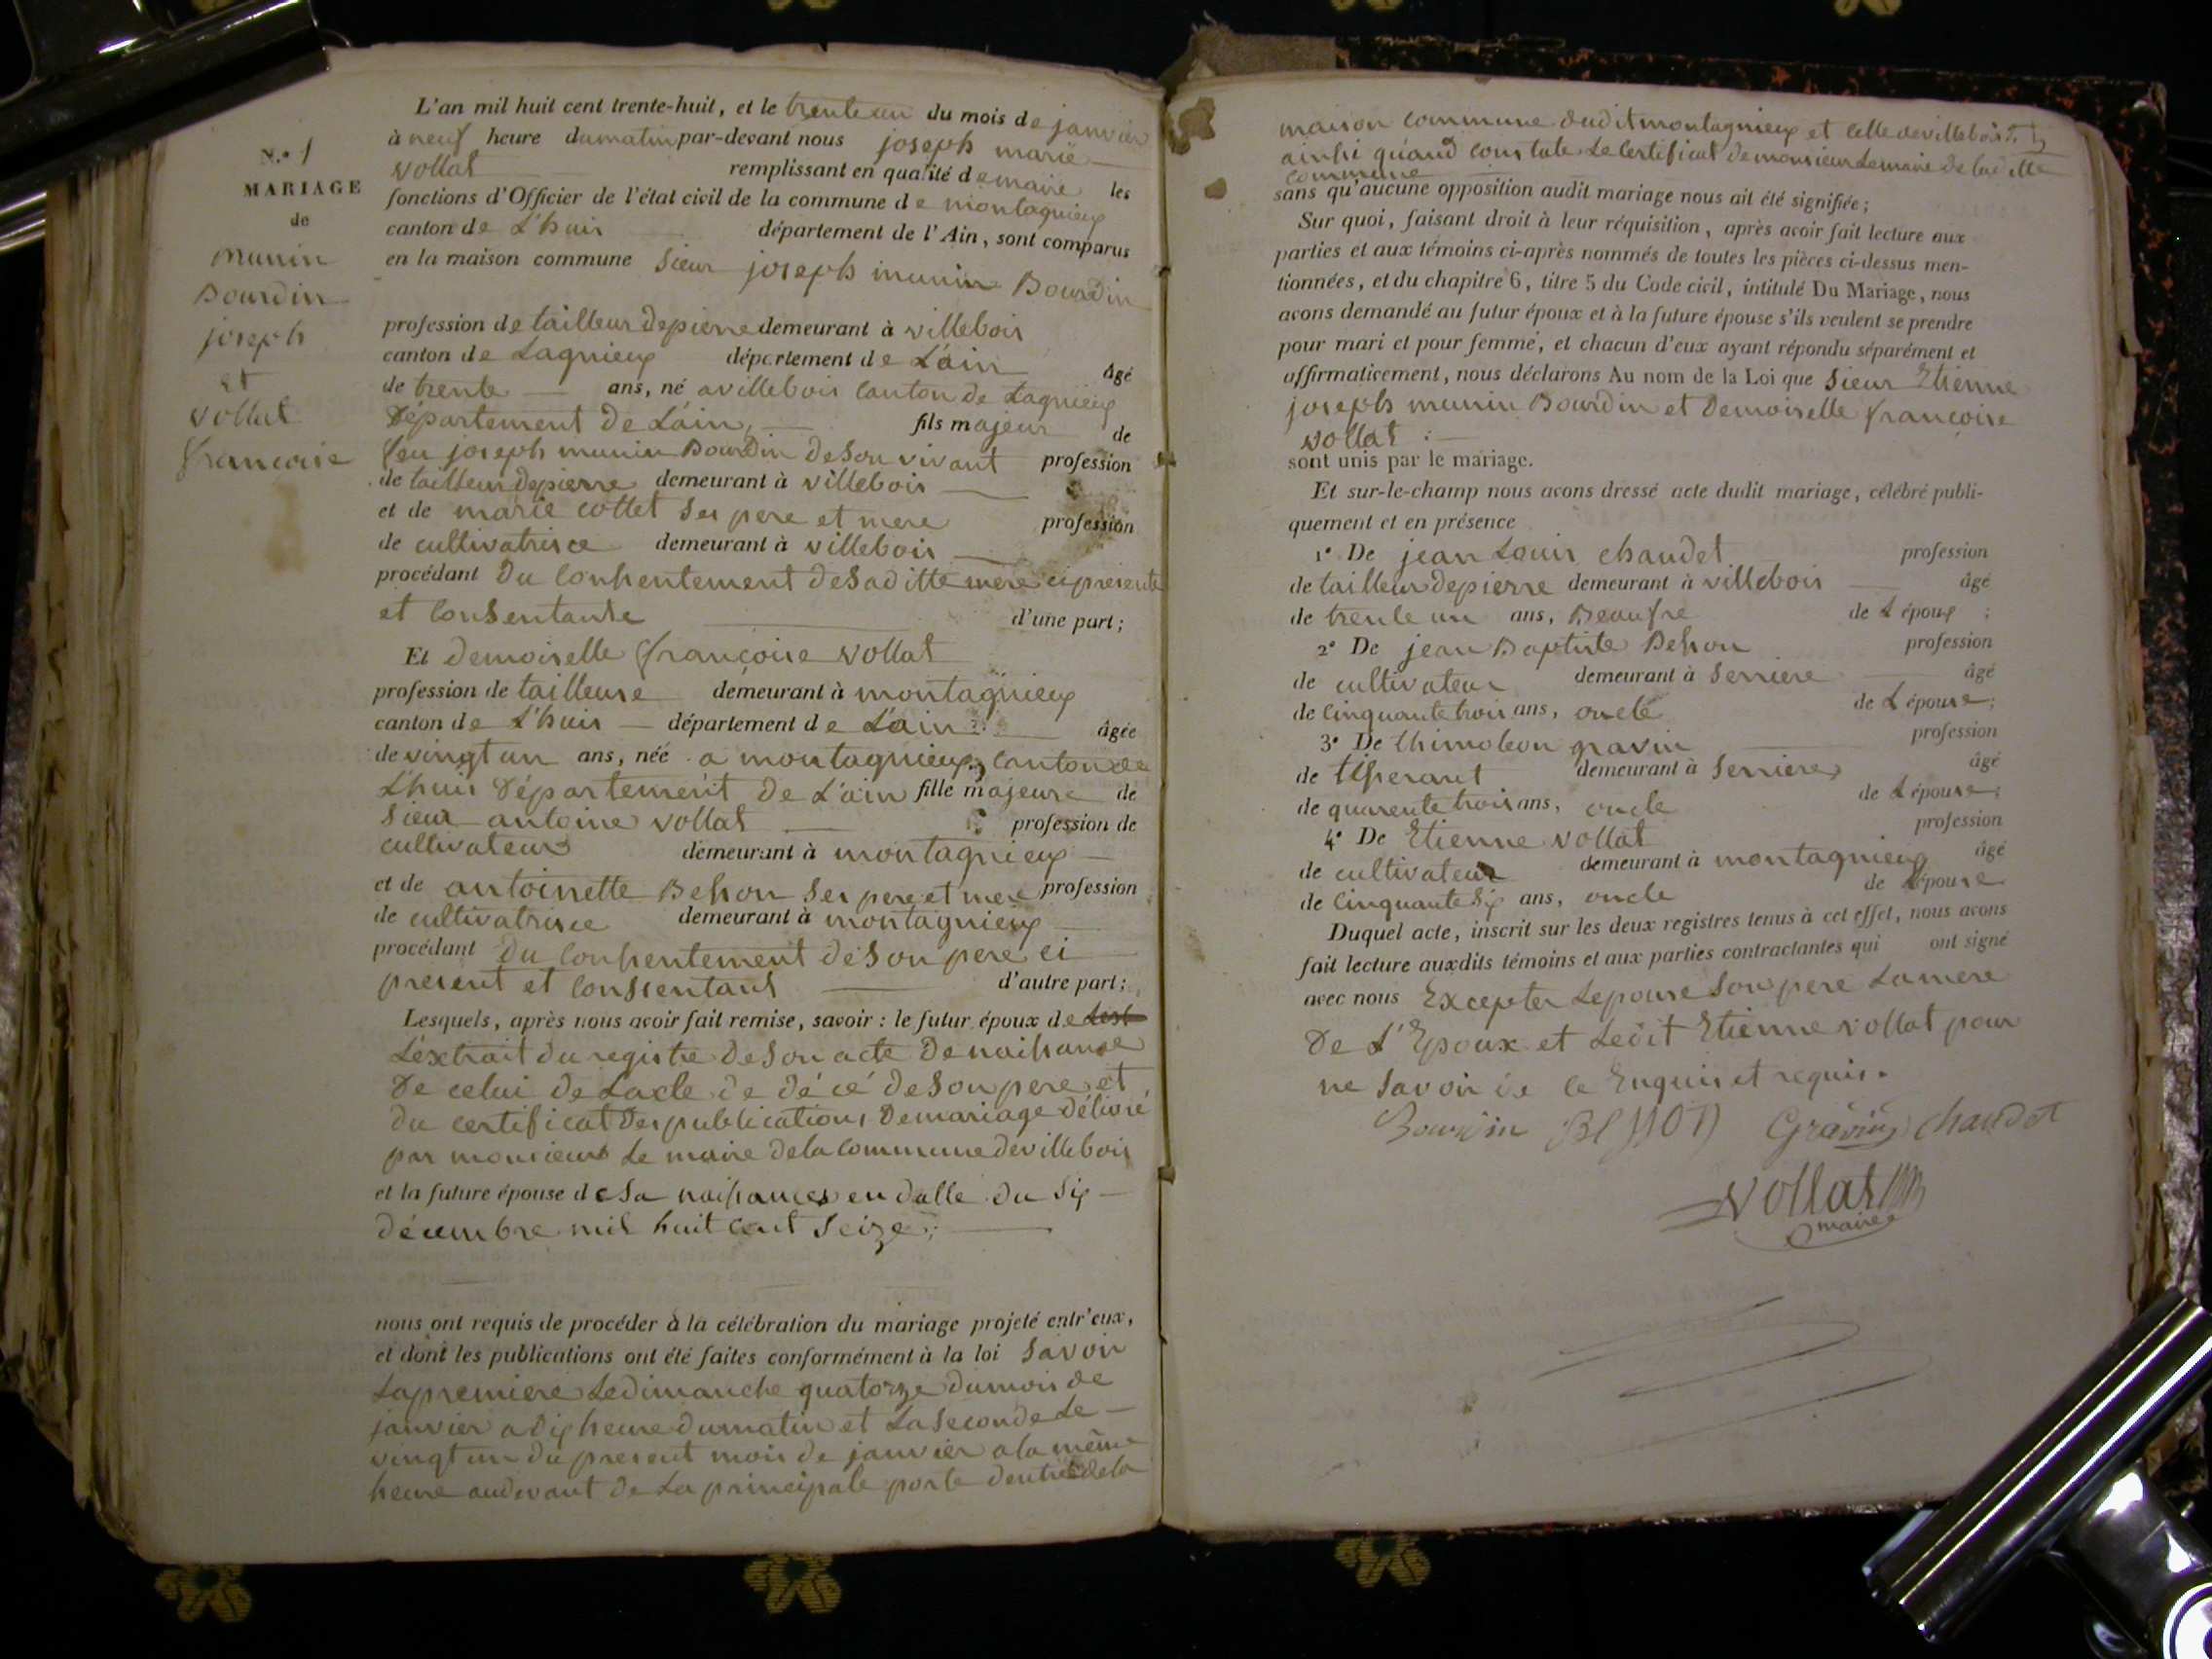 N.° 1
MARIAGE
de
munin
Bourdin
joseph
et
vollat
francoise
L'an mil huit cent trente-huit, et le trente un du mois de janvier
à neuf heure du matin par-devant nous joseph marie
vollat remplissant en qualité de maire les
fonctions d'Officier de l'état civil de la commune de montagnieux
canton de L'huis département de l'Ain, sont comparus
en la maison commune Sieur joseph munin Bourdin
profession de tailleur de pierre demeurant à villebois
canton de Lagnieux département de L'ain âgé
de trente ans, né a villebois canton de Lagnieux
Département De L'ain, fils majeur de
feu joseph munin Bourdin De Son vivant profession
de tailleur de pierre demeurant à villebois
et de marie cottet Ses pere et mere profession
de cultivatrisce demeurant à villebois
procédant Du Consentement De Sa ditte mere ci presente
et Consentante d'une part;
Et demoiselle françoise vollat
profession de tailleuse demeurant à montagnieux
canton de L'huis département de L'ain âgée
de vingt un ans, née a montagnieux, Canton de
L'huis Département De L'ain fille majeure de
Sieur antoine vollat profession de
cultivateur demeurant à montagnieux
et de antoinette Besson Ses pere et mere profession
de cultivatrisce demeurant à montagnieux
procédant Du Consentement de Son pere ci
present et Conssentant d'autre part;
Lesquels, après nous avoir fait remise, savoir : le futur époux de
L'extrait du registre de Son acte De naissance
De celui de L'acte de décé de Son pere et
du certificat Des publications De mariage Délivré
par monsieur Le maire de la Commune de villebois
et la future épouse de Sa naissances en datte du Six
décembre mil huit cent Seize;
nous ont requis de procéder à la célébration du mariage projeté entr'eux,
et dont les publications ont été faites conformément à la loi Savoir
La premiere Le dimanche quatorze du mois de
janvier a dix heure du matin et La Seconde Le
vingt un du present mois de janvier a la même
heure audevant de La principale porte d'entrée de la
maison commune dudit montagnieux et celle de villebois
ainsi quand Constate Le Certificat de monsieur Le maire de laditte
commune
sans qu'aucune opposition audit mariage nous ait été signifiée;
Sur quoi, faisant droit à leur réquisition, après avoir fait lecture aux
parties et aux témoins ci-après nommés de toutes les pièces ci-dessus men-
tionnées, et du chapitre 6, titre 5 du Code civil, intitulé Du Mariage, nous
avons demandé au futur époux et à la future épouse s'ils veulent se prendre
pour mari et pour femme, et chacun d'eux ayant répondu séparément et
affirmativement, nous déclarons Au nom de la Loi que Sieur Etienne
joseph munin Bourdin et Demoiselle françoise
vollat :
sont unis par le mariage.
Et sur-le-champ nous avons dressé acte dudit mariage, célébré publi-
quement et en présence
1° De jean Louis chaudet profession
de tailleur de pierre demeurant à villebois âgé
de trente un ans, Beaufre de L'époux ;
2° De jean Baptiste Besson profession
de cultivateur demeurant à Serriere âgé
de Cinquante trois ans, oncle de L'épouse;
3° De thimoleon gravin profession
de tisserant demeurant à Serrieres âgé
de quarente trois ans, oncle de L'épouse;
4° De Etienne vollat profession
de cultivateur demeurant à montagnieux âgé
de Cinquante Six ans, oncle de Lépouse
Duquel acte, inscrit sur les deux registres tenus à cet effet, nous avons
fait lecture auxdits témoins et aux parties contractantes qui ont signé
avec nous Excepter Lepouse Son pere La mere
De L'Epoux et Ledit Etienne vollat pour
ne Savoir de Ce Enquis et requis.
Bourdin BESSON Gravin chaudet
vollat
maire